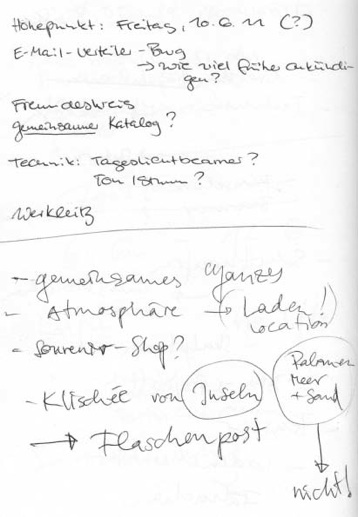 Höhepunkt: Freitag, 10.6.11 (?)
E-Mail-Verteiler-Burg
→ wie viel früher ankündi-
gen?
Freundeskreis
gemeinsamer Katalog?
Technik: Tageslichtbeamer?
Ton / Strom?
Werkleitz
- gemeinsames Ganzes
- Atmosphäre → (Laden!
Location)
- Souvenir-Shop?
- Klischée von Inseln
Palmen
Meer
+ Sand
→ Flaschenpost
nicht!